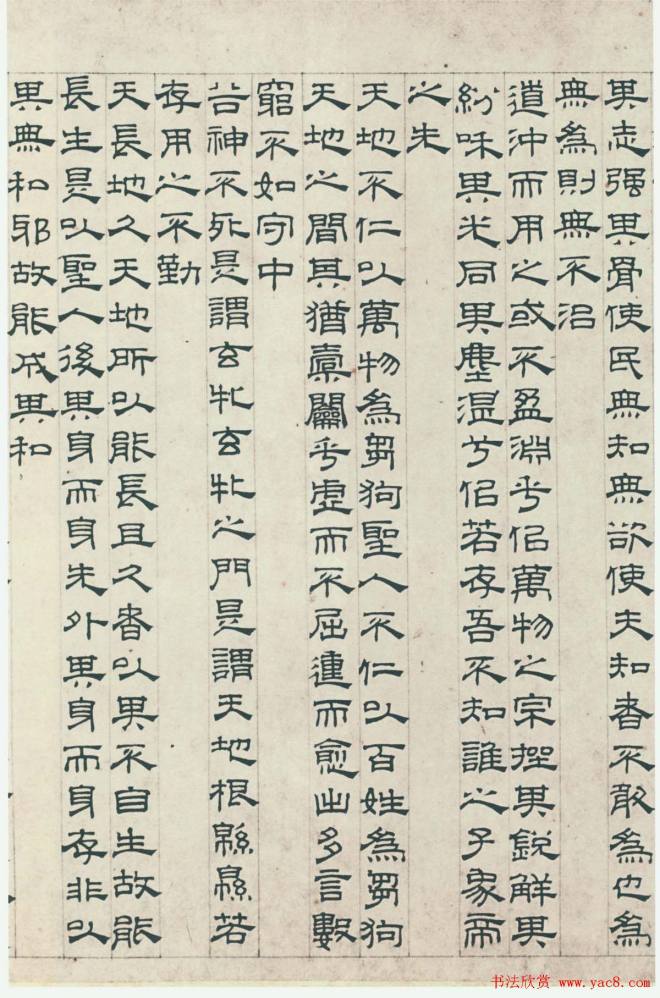 其志强其骨使民無知無欲使夫知者不敢為也為
無為則無不治
道沖而用之或不盈淵乎佀萬物之宗挫其鋭解其
紛咊其光同其塵湛兮佀若存吾不知誰之子象帝
之先
天地不仁以萬物為芻狗聖人不仁以百姓為芻狗
天地之間其猶橐籥乎虚而不屈動而愈出多言數
窮不如守中
谷神不死是謂玄牝玄牝之門是謂天地根緜緜若
存用之不勤
天長地久天地所以能長且久者以其不自生故能
長生是以聖人後其身而身先外其身而身存非以
其無私邪故能成其私
书法欣赏 www.yac8.com